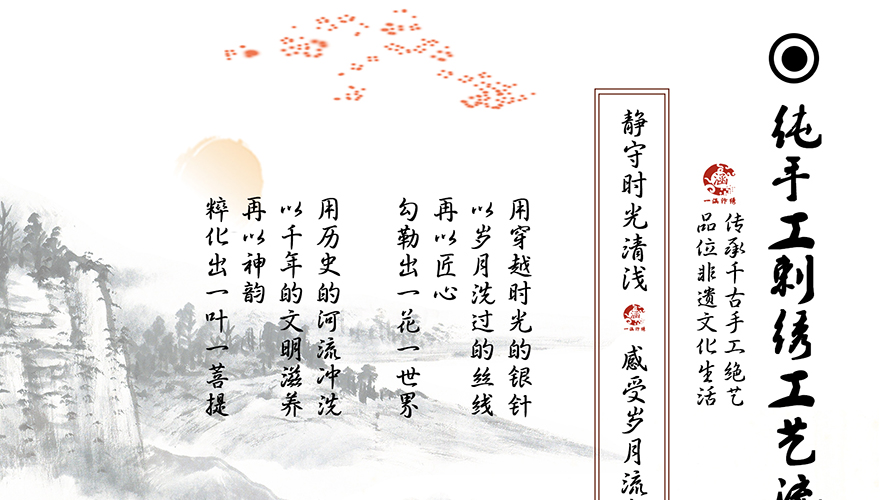 纯手工刺绣工艺流
传承千古手工绝艺
品位非遗文化生活
静守时光清浅
感受岁月流
用穿越时光的银针
以岁月洗过的丝线
再以匠心
勾勒出一花一世界
用历史的河流冲洗
以千年的文明滋养
再以神韵
粹化出一叶一菩提